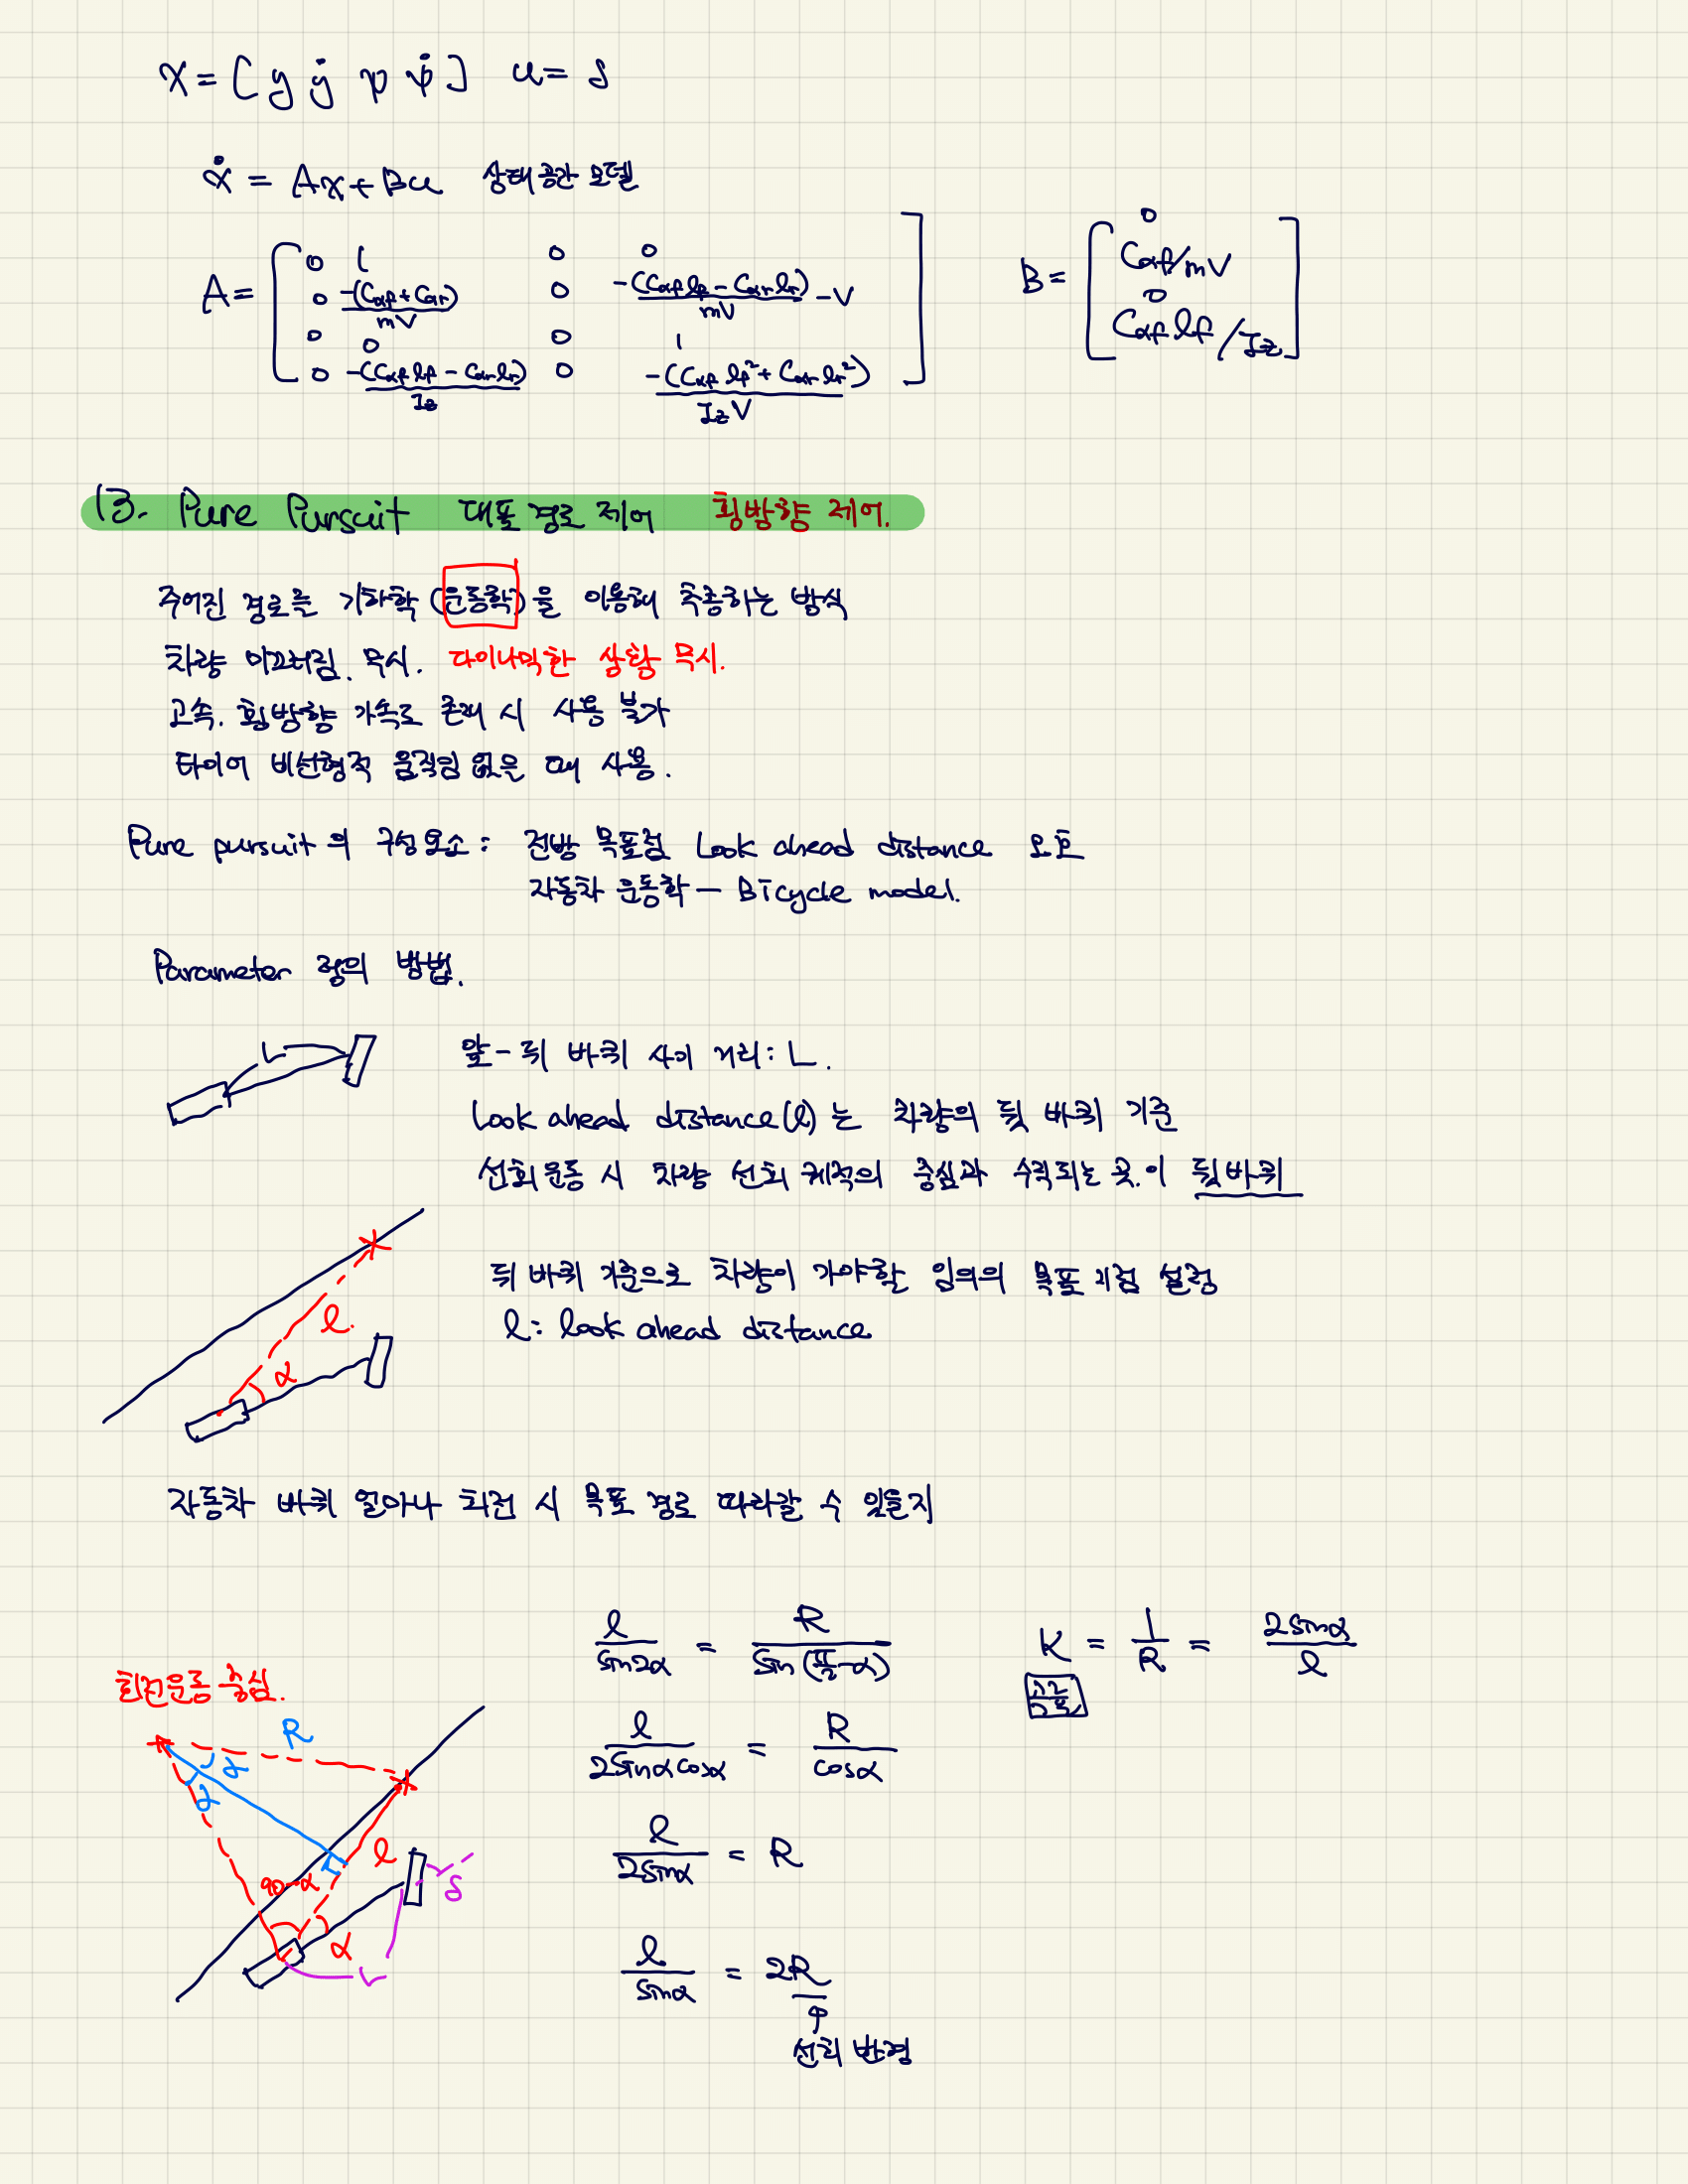 x = [ y ẏ ψ ψ̇ ] u = δ
ẋ = Ax + Bu 상태 공간 모델
A = [ 0 1 0 0
0 -(Cαf + Cαr)/mV 0 -(Cαf lf - Cαr lr)/mV - V
0 0 0 1
0 -(Cαf lf - Cαr lr)/Iz 0 -(Cαf lf² + Cαr lr²)/IzV ]
B = [ 0
Cαf/mV
0
Cαf lf/Iz ]
13. Pure Pursuit 대표 경로 제어 횡방향 제어.
주어진 경로를 기하학 (운동학)을 이용해 추종하는 방식
차량 미끄러짐 무시. 다이나믹한 상황 무시.
고속. 횡방향 가속도 존재 시 사용 불가
타이어 비선형적 움직임 없을 때 사용.
Pure pursuit의 구성요소 : 전방 목표점 Look ahead distance
자동차 운동학 — Bicycle model.
Parameter 정의 방법.
L
앞 - 뒤 바퀴 사이 거리 : L.
Look ahead distance(l)는 차량의 뒷 바퀴 기준
선회운동 시 차량 선회 궤적의 중심과 수직되는 곳.이 뒷바퀴
l.
α
뒤 바퀴 기준으로 차량이 가야할 임의의 목표 지점 설정
l : look ahead distance
자동차 바퀴 얼마나 회전 시 목표 경로 따라갈 수 있을지
l/sin2α = R/sin(π/2-α)
K = 1/R = 2sinα/l
곡률
회전운동 중심.
R
α
α
l
δ
90-α
α
L
l/2sinαcosα = R/cosα
l/2sinα = R
l/sinα = 2R
선회 반경